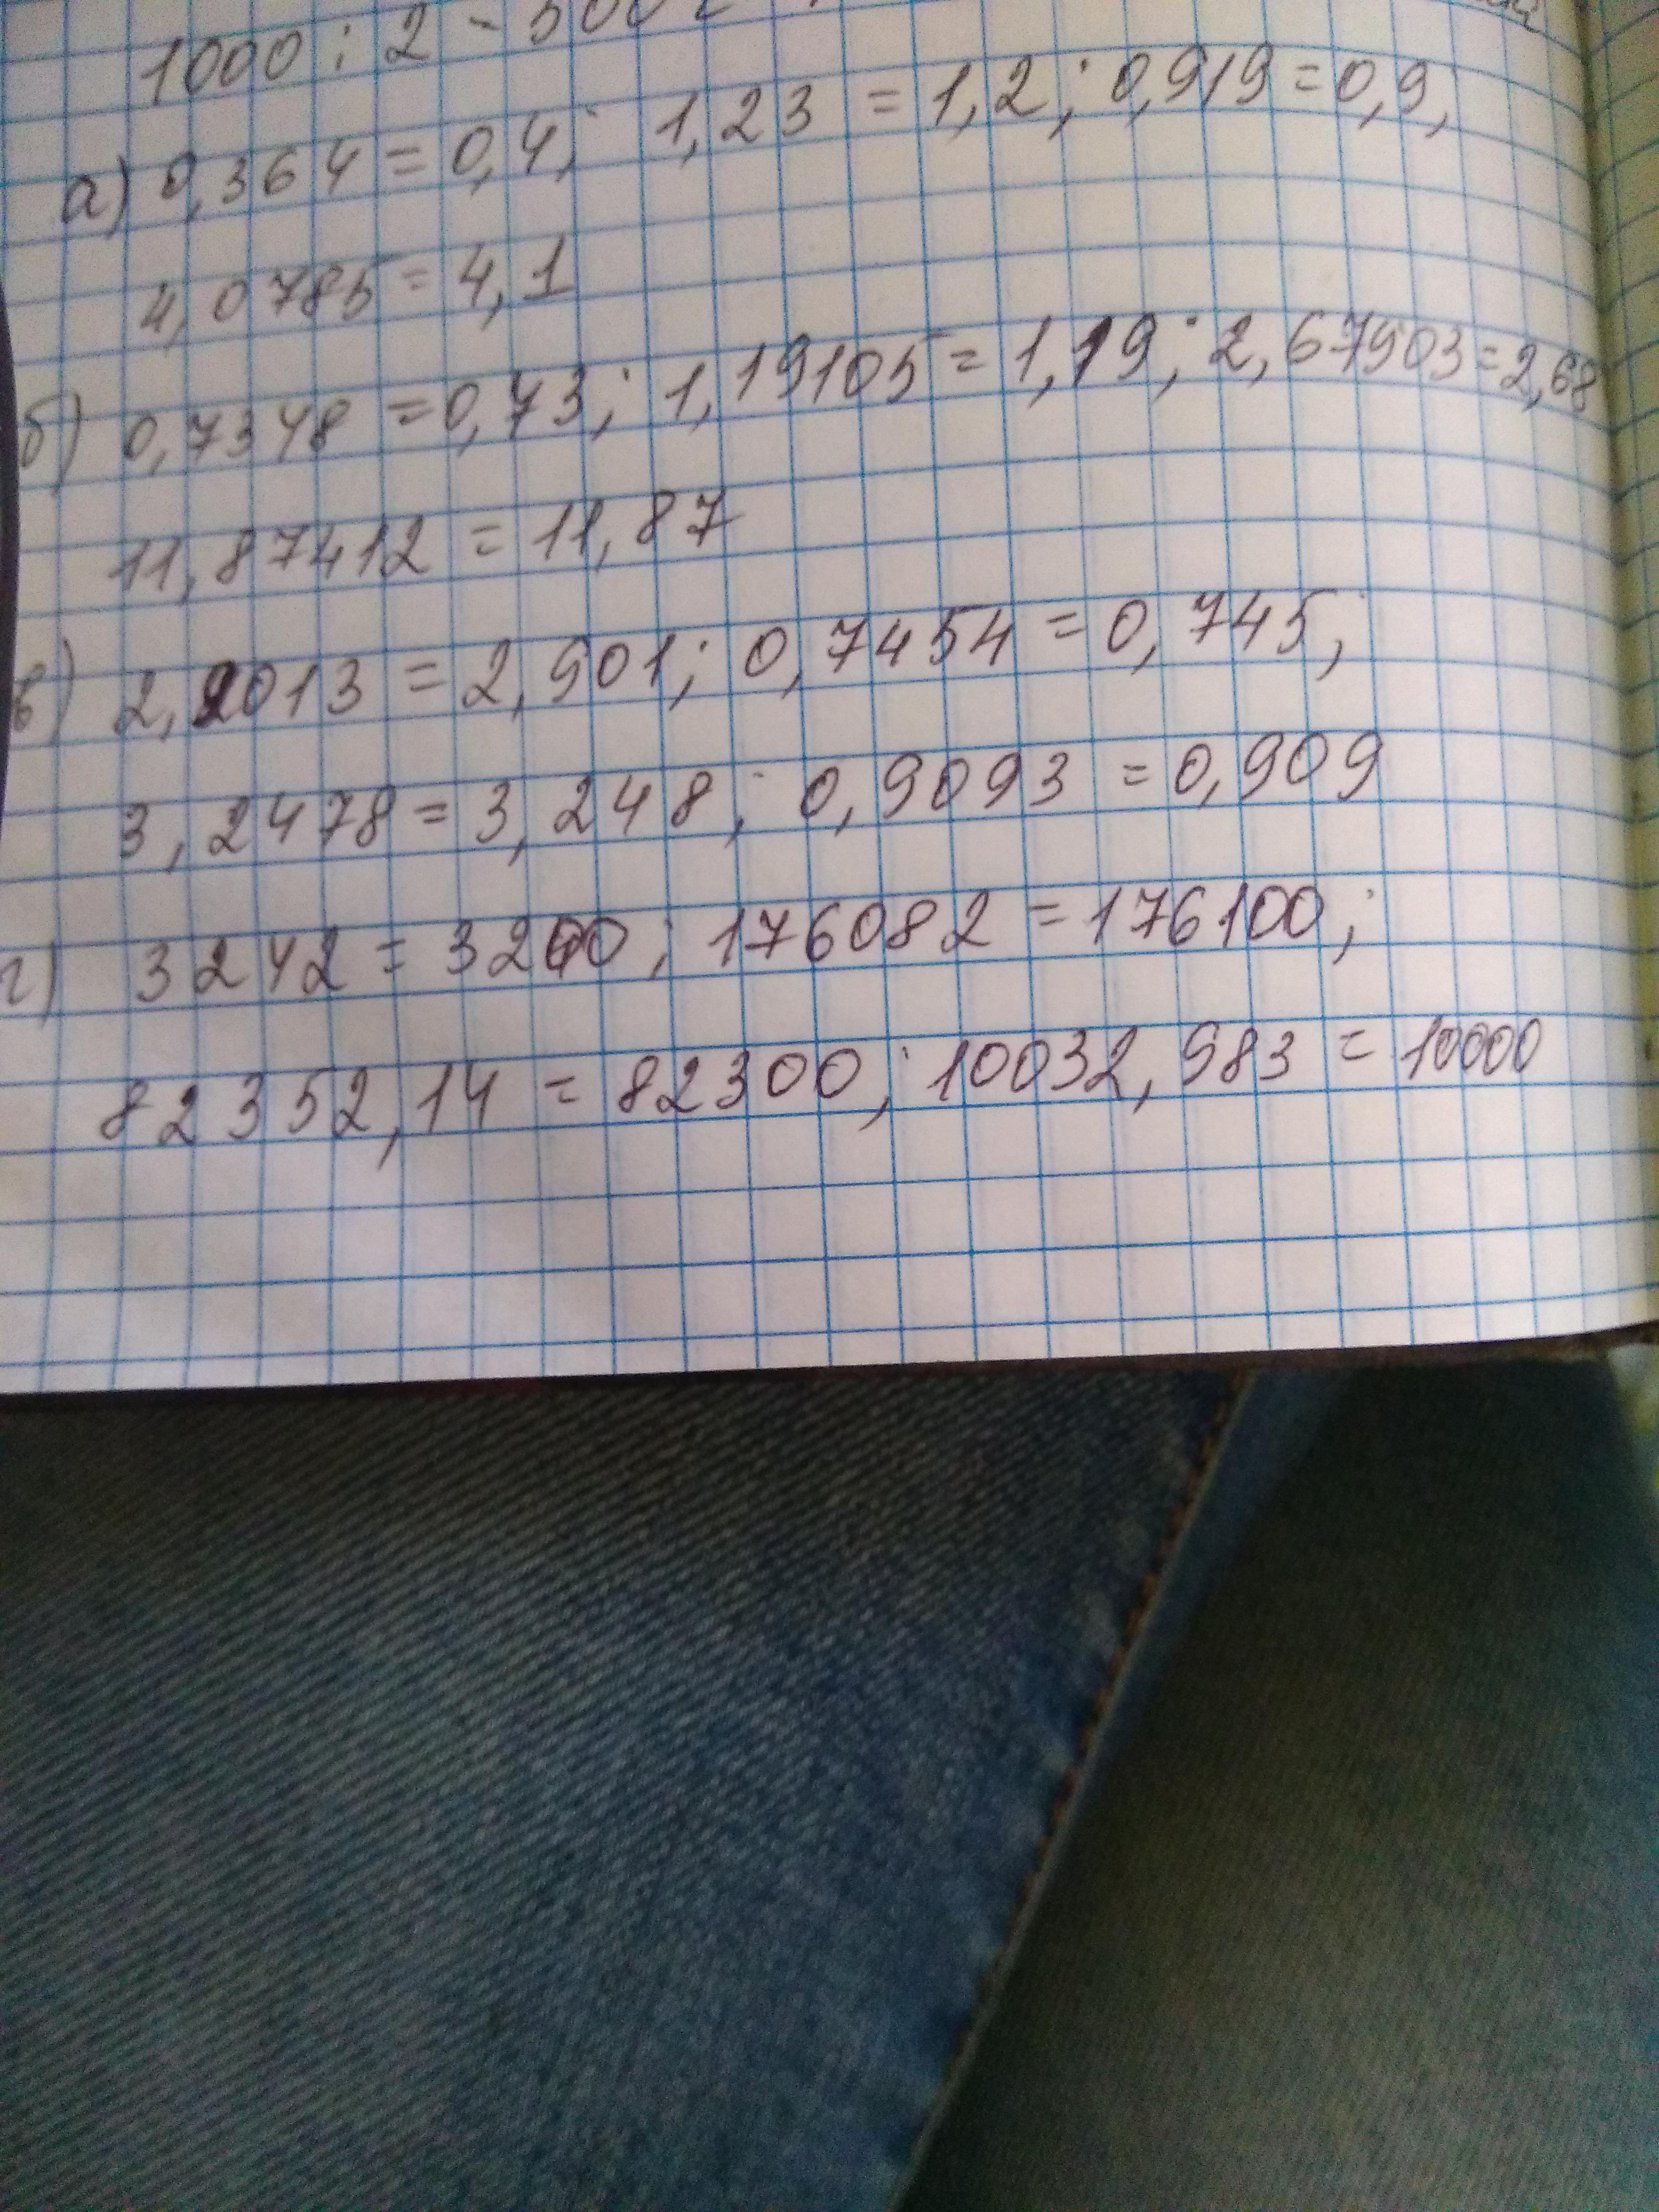 1000 : 2 - 500 г
а) 0,364 = 0,4; 1,23 = 1,2; 0,919 = 0,9,
4,0785 = 4,1
б) 0,7348 = 0,73; 1,19105 = 1,19; 2,67903 = 2,68
11,87412 = 11,87
в) 2,9013 = 2,901; 0,7454 = 0,745;
3,2478 = 3,248; 0,9093 = 0,909
г) 3242 = 3200; 176082 = 176100;
82352,14 = 82300; 10032,983 = 10000